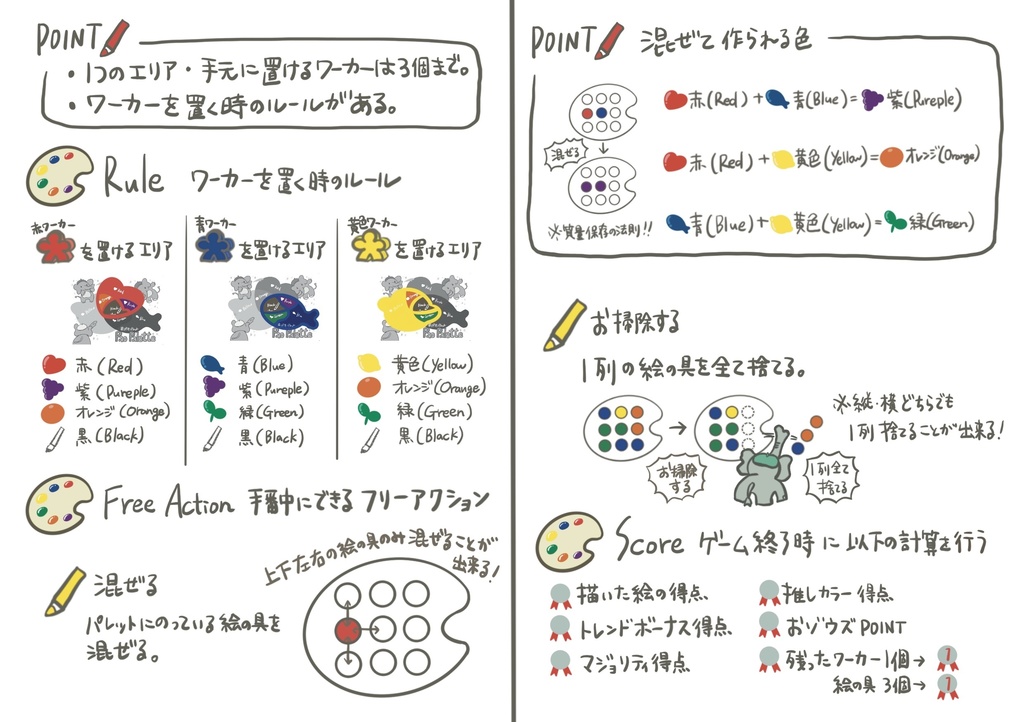 POINT
・1つのエリア・手元に置けるワーカーは3個まで。
・ワーカーを置く時のルールがある。
Rule ワーカーを置く時のルール
赤ワーカー
を置けるエリア
赤(Red)
紫(Pureple)
オレンジ(Orange)
黒(Black)
青ワーカー
を置けるエリア
青(Blue)
紫(Pureple)
緑(Green)
黒(Black)
黄色ワーカー
を置けるエリア
黄色(Yellow)
オレンジ(Orange)
緑(Green)
黒(Black)
Free Action 手番中にできるフリーアクション
混ぜる
パレットにのっている絵の具を
混ぜる。
上下左右の絵の具のみ混ぜることが
出来る!
POINT 混ぜて作られる色
混ぜる
※質量保存の法則!!
赤(Red)+青(Blue)=紫(Pureple)
赤(Red)+黄色(Yellow)=オレンジ(Orange)
青(Blue)+黄色(Yellow)=緑(Green)
お掃除する
1列の絵の具を全て捨てる。
お掃除
する
1列全て
捨てる
※縦・横どちらでも
1列捨てることが出来る!
Score ゲーム終了時に以下の計算を行う
描いた絵の得点
トレンドボーナス得点
マジョリティ得点
推しカラー得点
おゾウズPOINT
残ったワーカー1個→1
絵の具3個→1